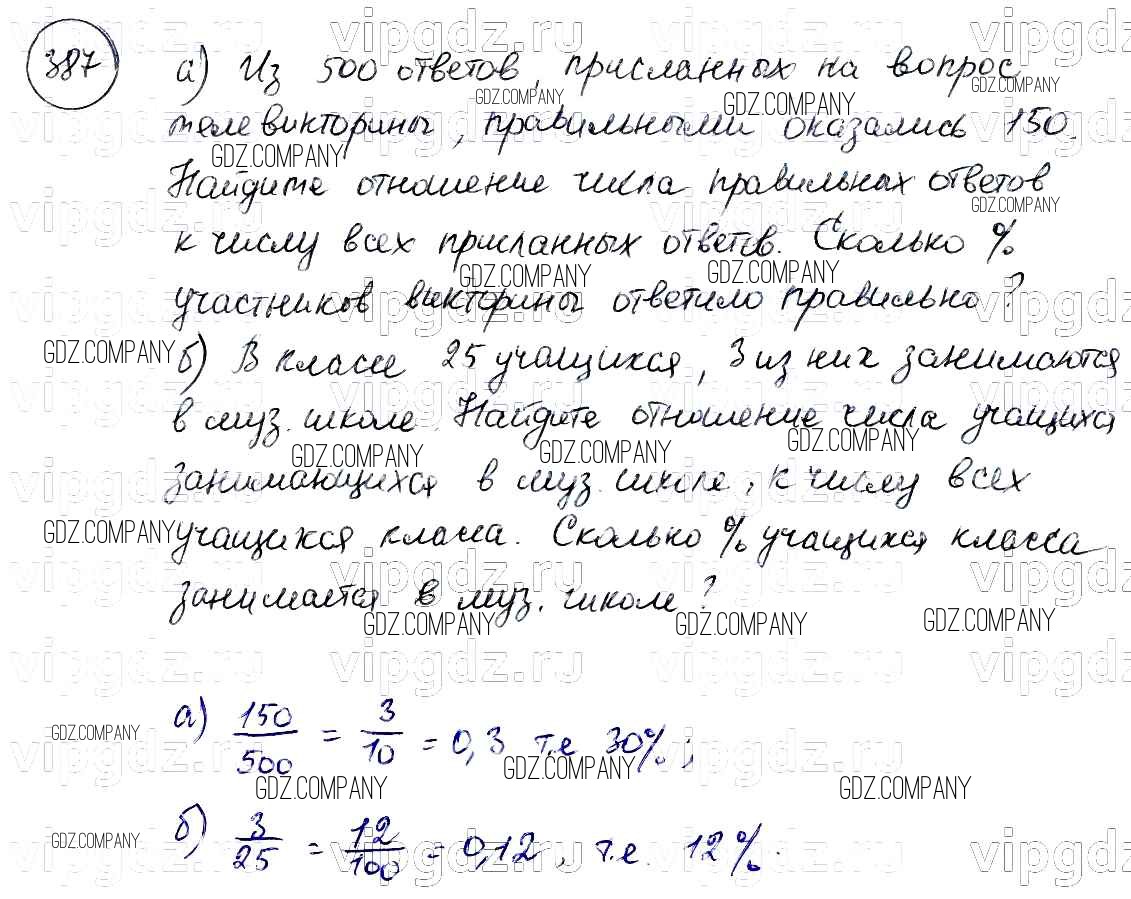 387
а) Из 500 ответов, присланных на вопрос
телевикторины, правильными оказались 150.
Найдите отношение числа правильных ответов
к числу всех присланных ответов. Сколько %
участников викторины ответило правильно?
б) В классе 25 учащихся, 3 из них занимаются
в муз. школе. Найдите отношение числа учащихся
занимающихся в муз. школе, к числу всех
учащихся класса. Сколько % учащихся класса
занимается в муз. школе?
а) 150/500 = 3/10 = 0,3 т.е 30%;
б) 3/25 = 12/100 = 0,12, т.е. 12%.
vipgdz.ru
GDZ.COMPANY